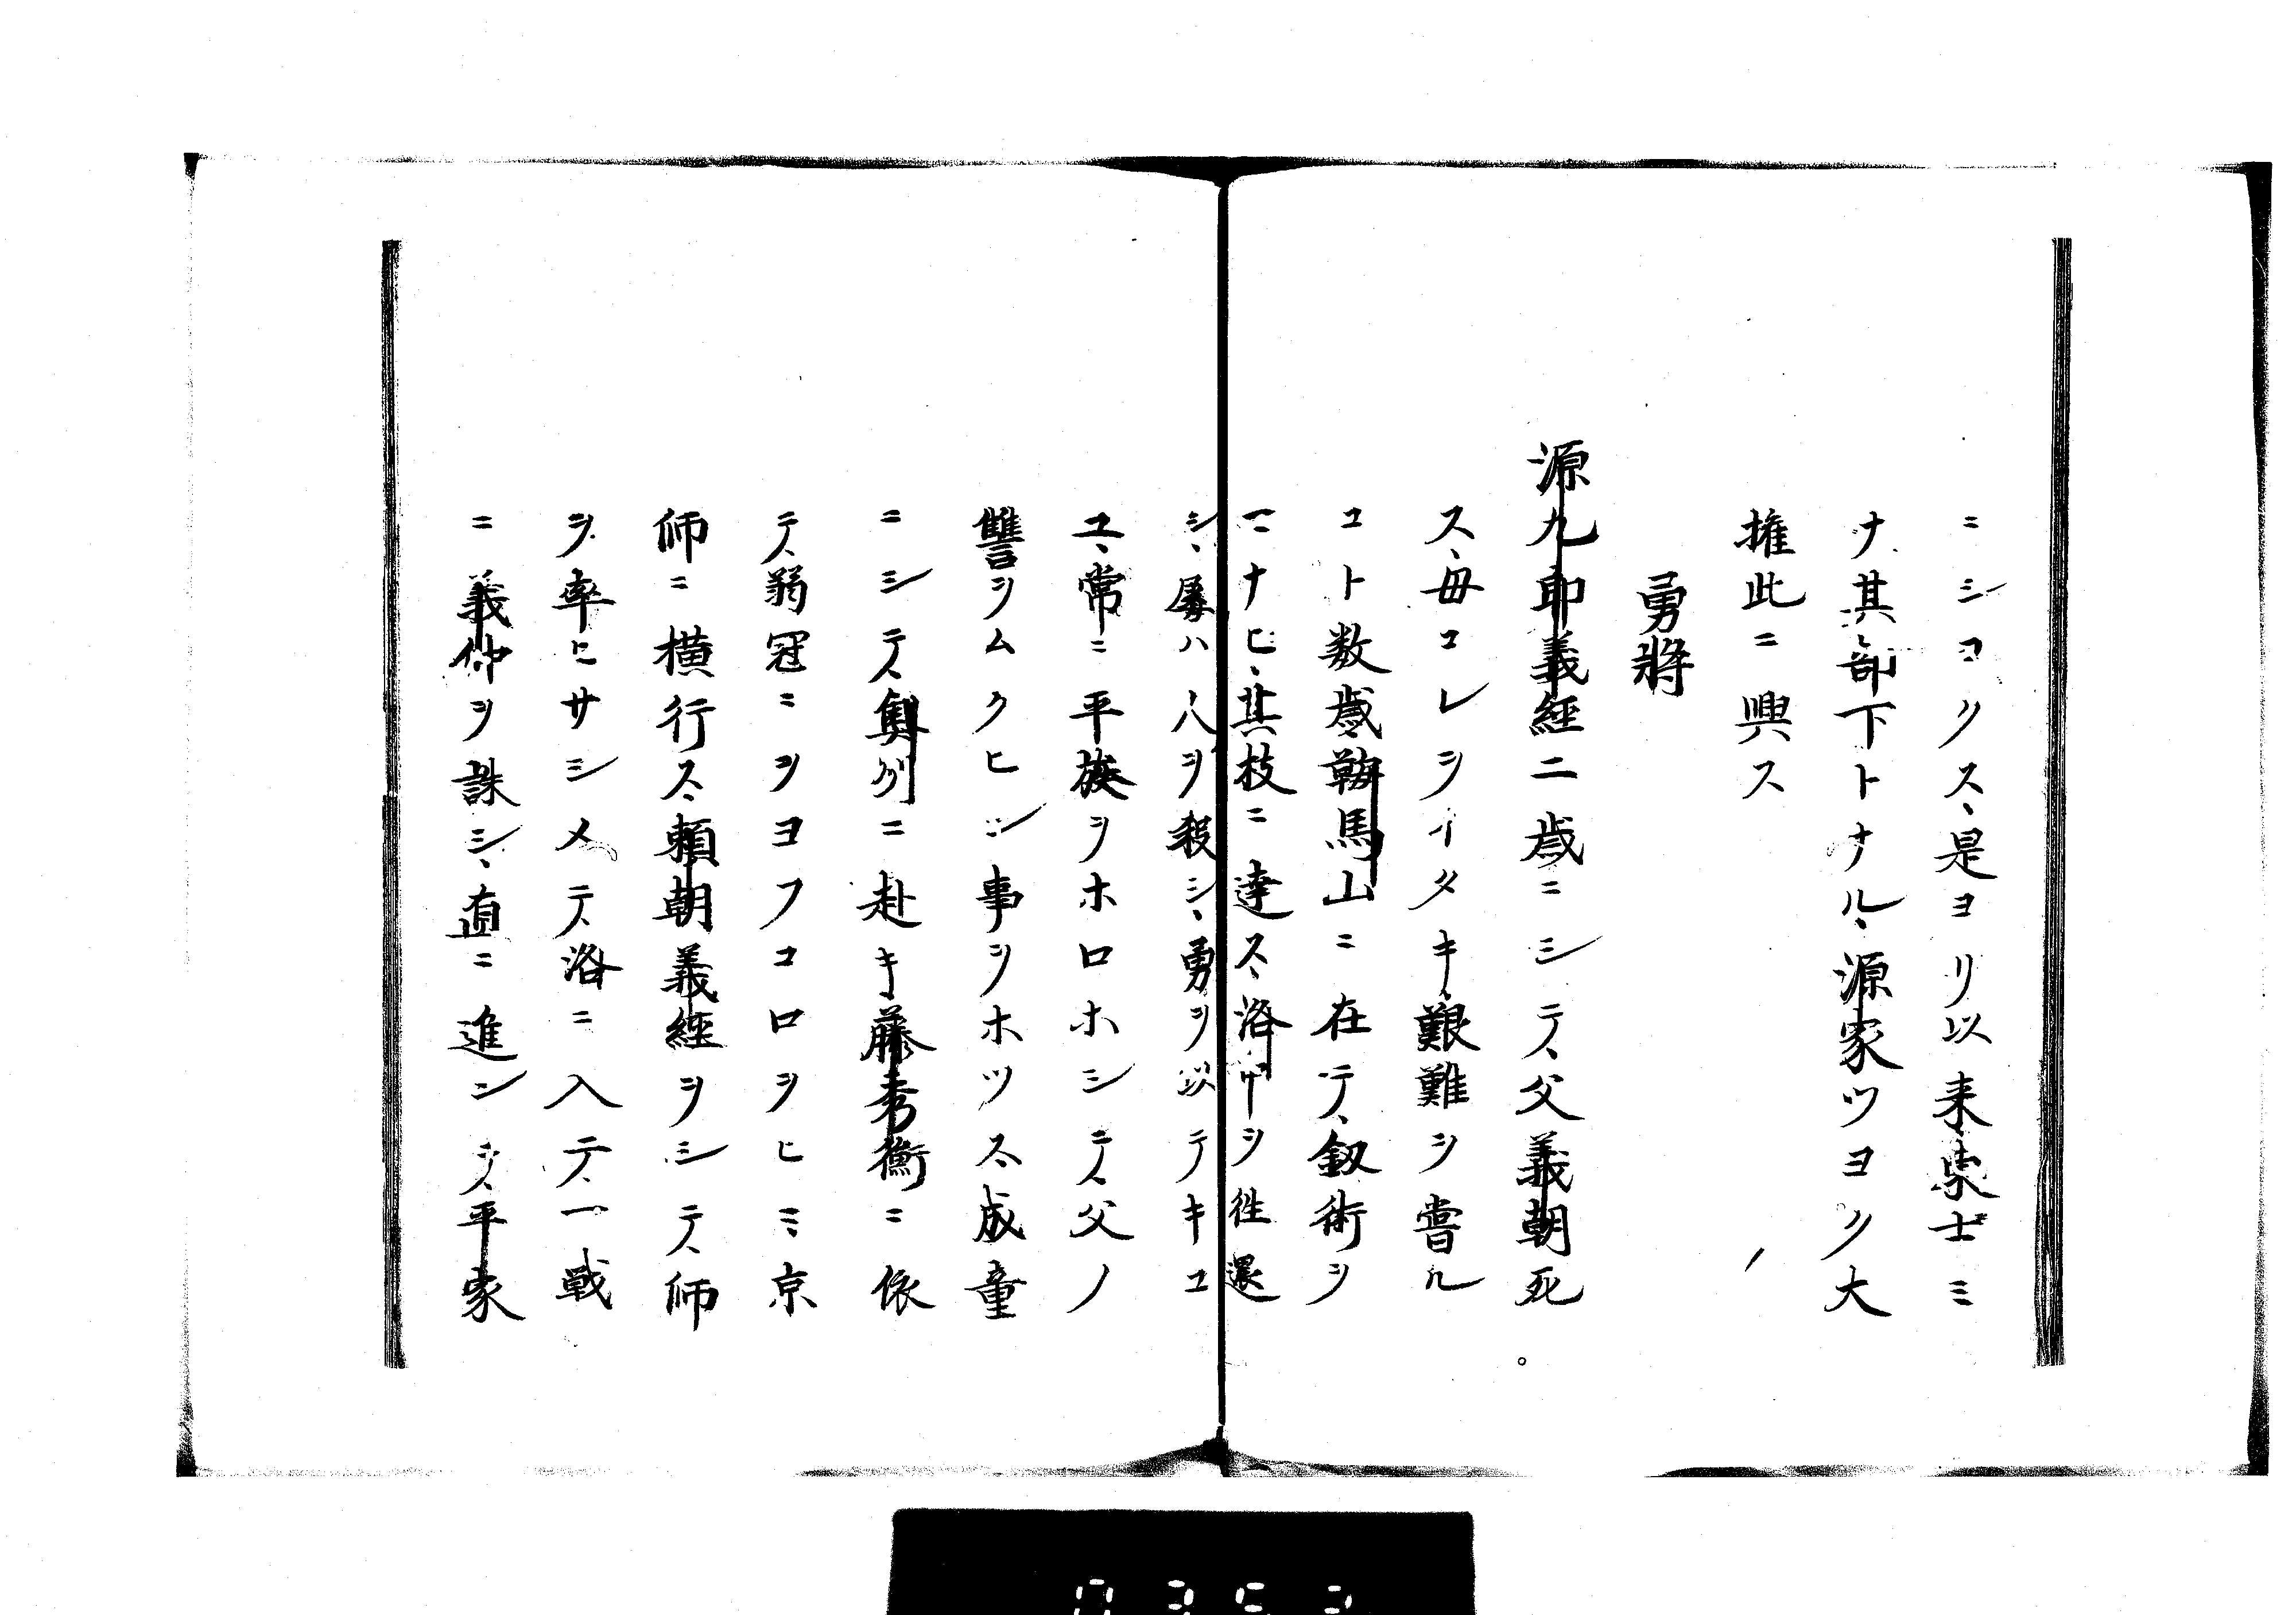 ニシヨクス、是ヨリ以来東士ミ
ナ其部下トナル、源家ツヨク大
権此ニ興ス
勇將
源九郎義経二歳ニシテ、父義朝死
ス、毋コレヲイタキ、艱難ヲ嘗ル
コト数歳、鞍馬山ニ在テ、釼術ヲ
ナヒ、其技ニ達ス、洛中ヲ徃還
シ、屡ハ人ヲ殺シ、勇ヲ以テキコ
ユ、常ニ平族ヲホロホシテ、父ノ
讐ヲムクヒン事ヲホツス、成童
ニシテ、奥州ニ赴キ、藤秀衡ニ依
テ、弱冠ニヲヨフコロヲヒ、京
師ニ横行ス、頼朝義経ヲシテ、師
ヲ率ヒサシメテ、洛ニ入テ、一戦
ニ義仲ヲ誅シ、直ニ進ンテ、平家
0353